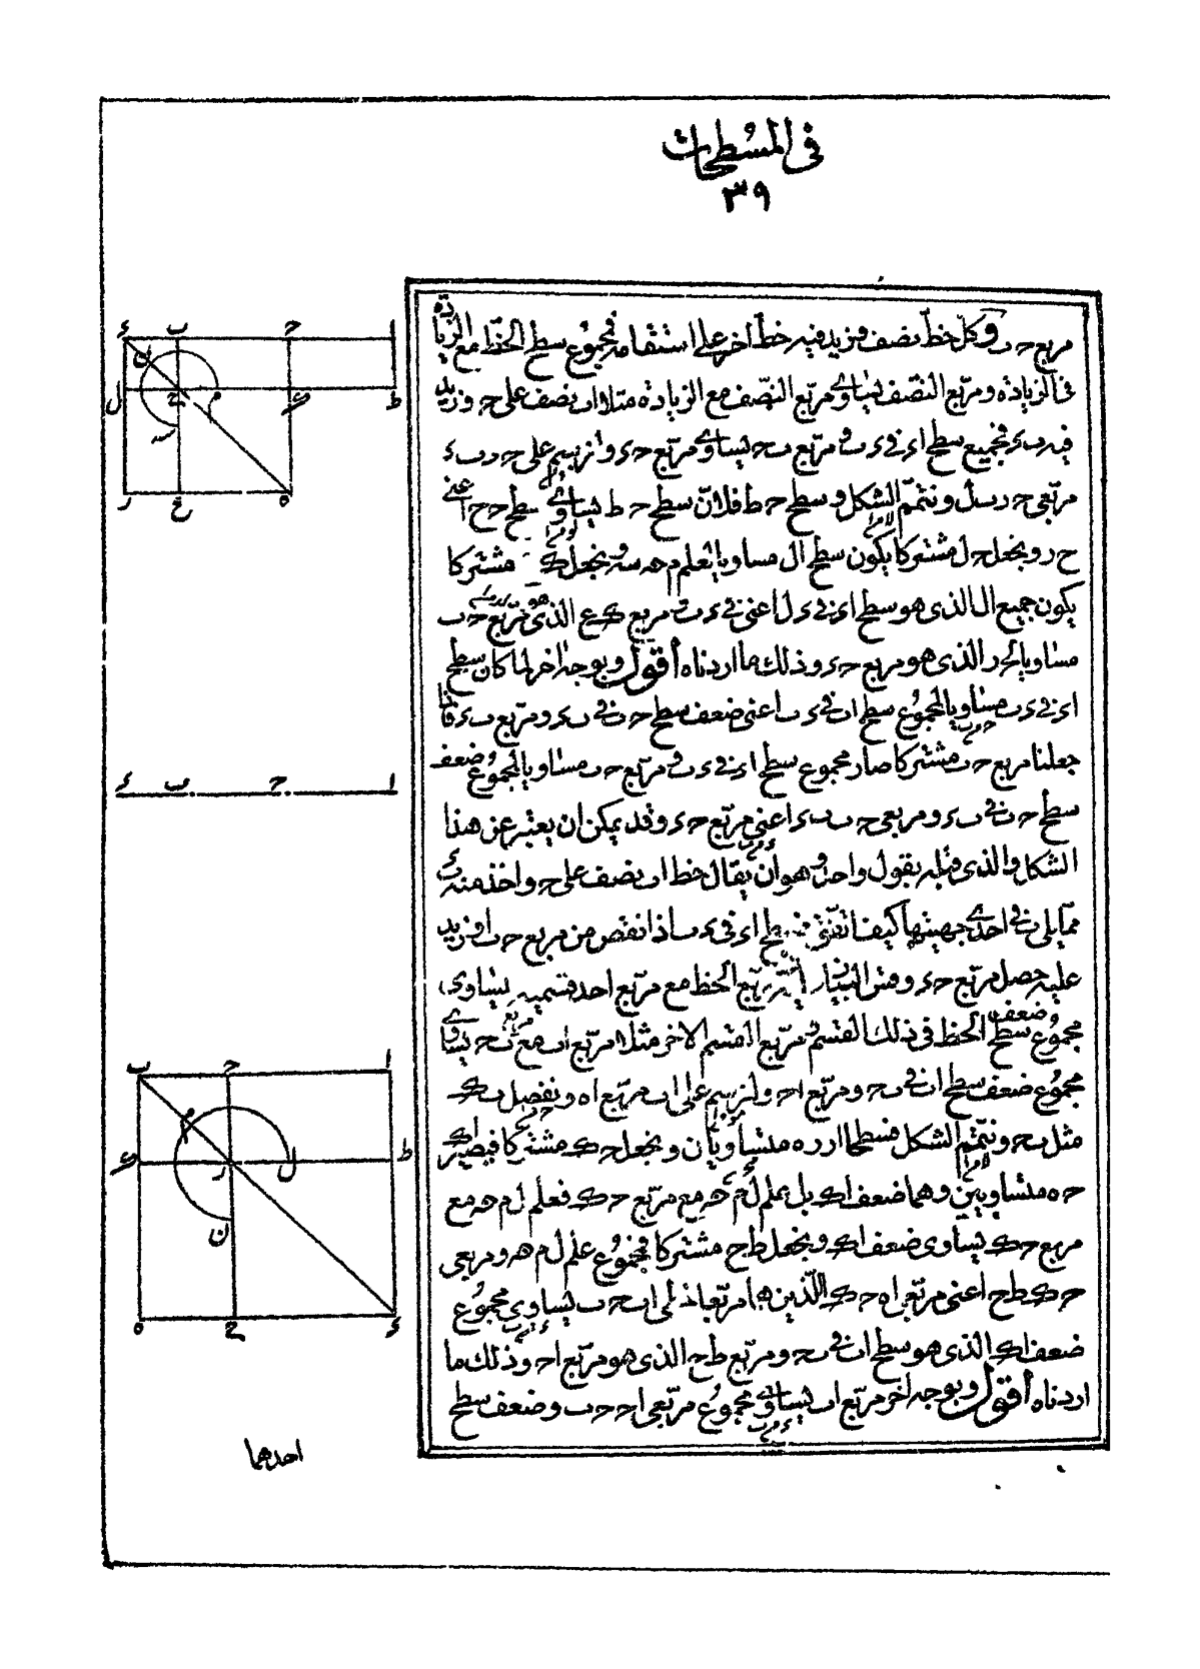 في المسطحات
٣٩
مربع حب و كل خط نصف فزيد فيه خط آخر على استقامه فمجموع سطح الخط مع الزيادة
في الزيادة و مربع النصف يساوي مربع النصف مع الزيادة مثلا اب نصف على حـ و زيد
فيه بء فجميع سطح اء في ءب و مربع بحـ يساوي مربع حء و لنرسم على حء بء
مربعي حر سل و نتمم الشكل و سطح حط فلان سطح حط يساوي سطح حح اعني
ح ر و نجعل حل مشتركا يكون سطح ال مساويا لعلم م هـ سه و نجعل ك مشتركا
يكون جميع ال الذي هو سطح اء في ءل اعني في ءب مربع كع الذي هو مربع حب
مساويا لحر الذي هو مربع حء و ذلك ما اردناه أقول و بوجه اخر لما كان سطح
اء في ءب مساويا لمجموع سطح اب في ءب اعني ضعف سطح حب في بء و مربع بء فاذا
جعلنا مربع حب مشتركا صار مجموع سطح اء في ءب و مربع حب مساويا لمجموع ضعف
سطح حب في بء و مربعي حب بء اعني مربع حء و قد يمكن ان يعتبر عن هذا
الشكل و الذي قبله بقول واحد و هو ان يقال خط اب نصف على حـ و اخذ منه ء
مما يلي ب في احدى جهيتها كيف اتفق فسطح اء في ءب اذا نقص من مربع حب او زيد
عليه حصل مربع حء مربع الخط مع مربع احد قسميه يساوي
مجموع ضعف سطح الخط في ذلك القسم و مربع القسم الاخر مثلا مربع اب مع مربع بحـ يساوي
مجموع ضعف سطح اب في بحـ و مربع احـ و لنرسم على اب مربع اه و نفصل بك
مثل بحـ و نتمم الشكل فسطحا ار ره متساويان و نجعل حك مشتركا فيصير اك
حه متساويين و هما ضعف اك بل علم ل م هـ مع مربع حك فعلم ل م هـ مع
مربع حك يساوي ضعف اك و نجعل طح مشتركا فمجموع علم ل م هـ و مربعي
حك طح اعني مربعي اه حك اللذين هما مربعا اب حب يساوي مجموع
ضعف اك الذي هو سطح اب في بحـ و مربع طح الذي هو مربع احـ و ذلك ما
اردناه أقول و بوجه اخر مربع اب يساوي مجموع مربعي احـ حب و ضعف سطح
احدهما
ا حـ ب ء
ط ك ح ل
ن م سه
ه ع ر
ا حـ ب ء
ا حـ ب
ط ل ر ك
م ن
ء ح ه